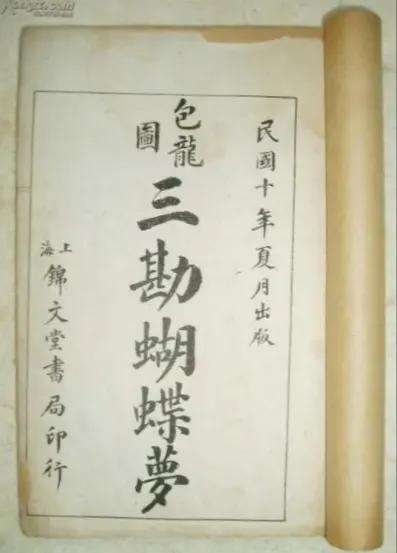 民國十年夏月出版
包龍圖
三勘蝴蝶夢
上海
錦文堂書局印行